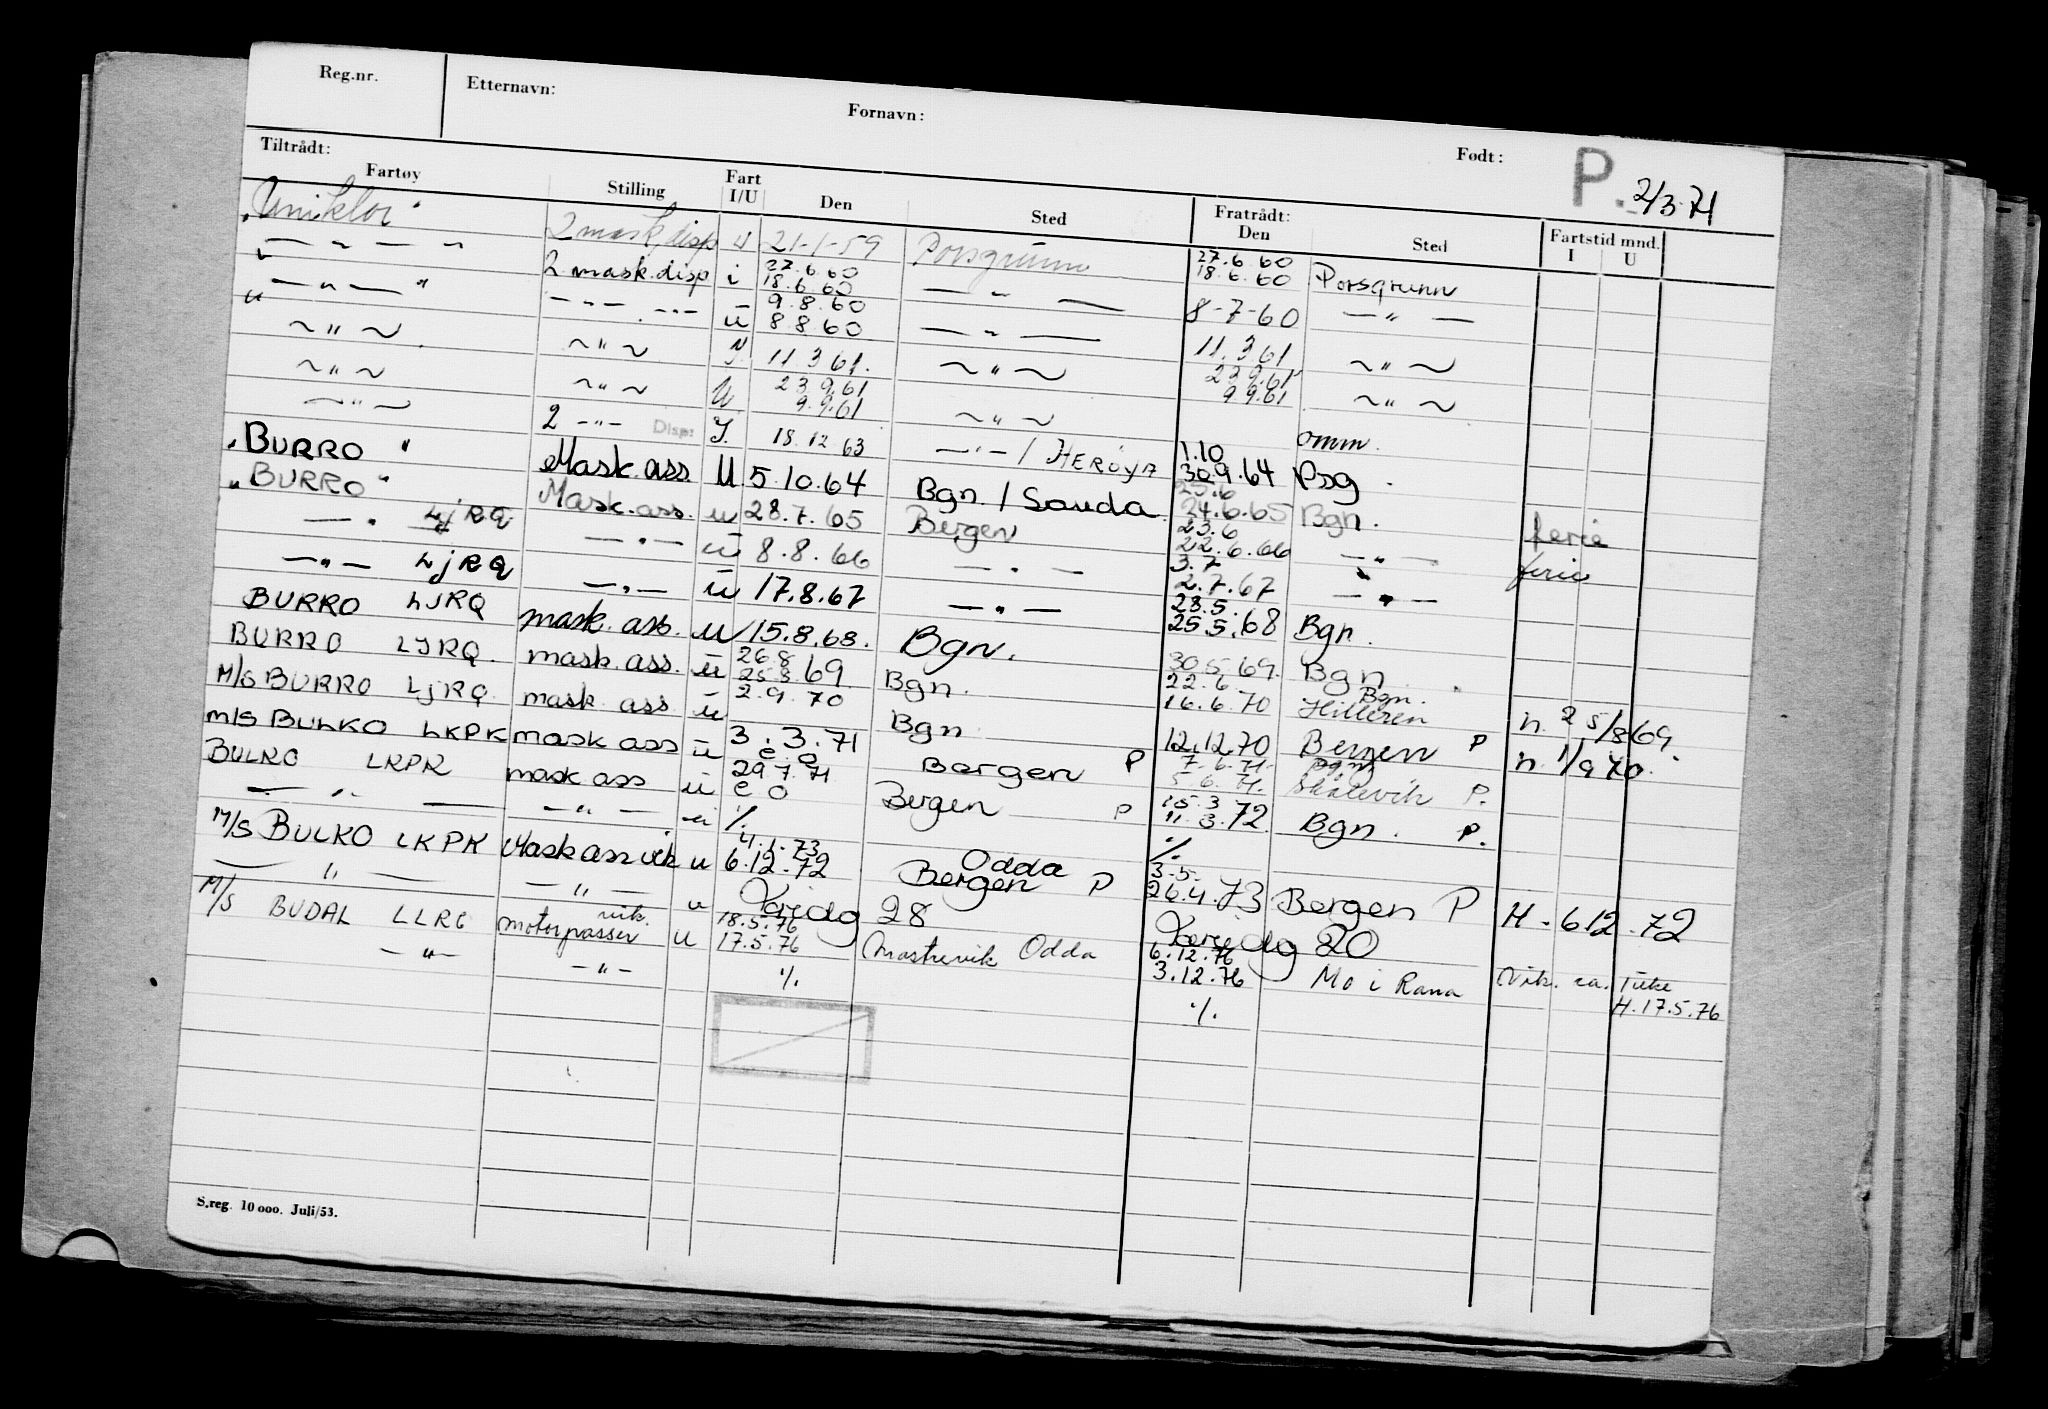 Reg.nr. Etternavn: Fornavn: Født: P. 2/3.71
Tiltrådt: Fratrådt: Fartstid mnd.
Fartøy Stilling Fart I/U Den Sted Den Sted I U
"Uniklor" 2 mask disp u 21-1-59 Porsgrunn 27.6.60 18.6.60 Porsgrunn
— " — " 2 mask.disp i 27.6.60 18.6.60 — " — 8-7-60 — " —
— " — " — " — u 9.8.60 8.8.60 — " — 11.3.61 ~ " ~
~ " ~ ~ " ~ I. 11.3.61. ~ " ~ 23.9.61 9.9.61 ~ " ~
~ " ~ ~ " ~ U 23.9.61 9.9.61 ~ " ~ omm.
— " — 2 — " — Disp: I. 18.12.63 — " — / HERØYA 1.10 30.9.64 Psg.
"BURRO" Mask.ass. U 5.10.64 Bgn. / Sauda 25.6 24.6.65 Bgn. ferie
"BURRO" Mask.ass. u 28.7.65 Bergen 23.6 22.6.66 — " — ferie
— " — LjRQ — " — u 8.8.66 — " — 3.7 2.7.67 — " —
— " — LjRQ — " — u 17.8.67 — " — 28.5. 25.5.68 Bgn.
BURRO LJRQ mask. ass. u 15.8.68. Bgn. 30.5.69. Bgn.
BURRO LJRQ. mask.ass. u 26.8 25.8.69 Bgn. 22.6. 16.6.70 Bgn. Hilleren n. 25/8 69.
M/S BURRO LjRQ. mask ass u 2.9.70 Bgn 12.12.70 Bergen P n. 1/9 70.
M/S BULKO LKPK mask ass u 3.3.71 e.o Bergen P 7.6.71. 5.6.71. Bgn Skålevik P.
BULKO LKPK mask ass u 29.7.71 e o Bergen P 15.3 11.3.72 Bgn. P.
— " — — " — u ./. ./.
M/S BULKO LKPK Mask ass vik u 4.1.73 6.12.72 Odda Bergen P 3.5. 26.4.73 Bergen P H - 6.12.72
— " — — " — u 28 20
M/S BUDAL LLRG vik. motorpasser u 18.5.76 17.5.76 Odda 6.12.76 3.12.76 Mo i Rana Vik. ca.
— " — — " — ./. ./. H.17.5.76
S.reg. 10 000. Juli/53.